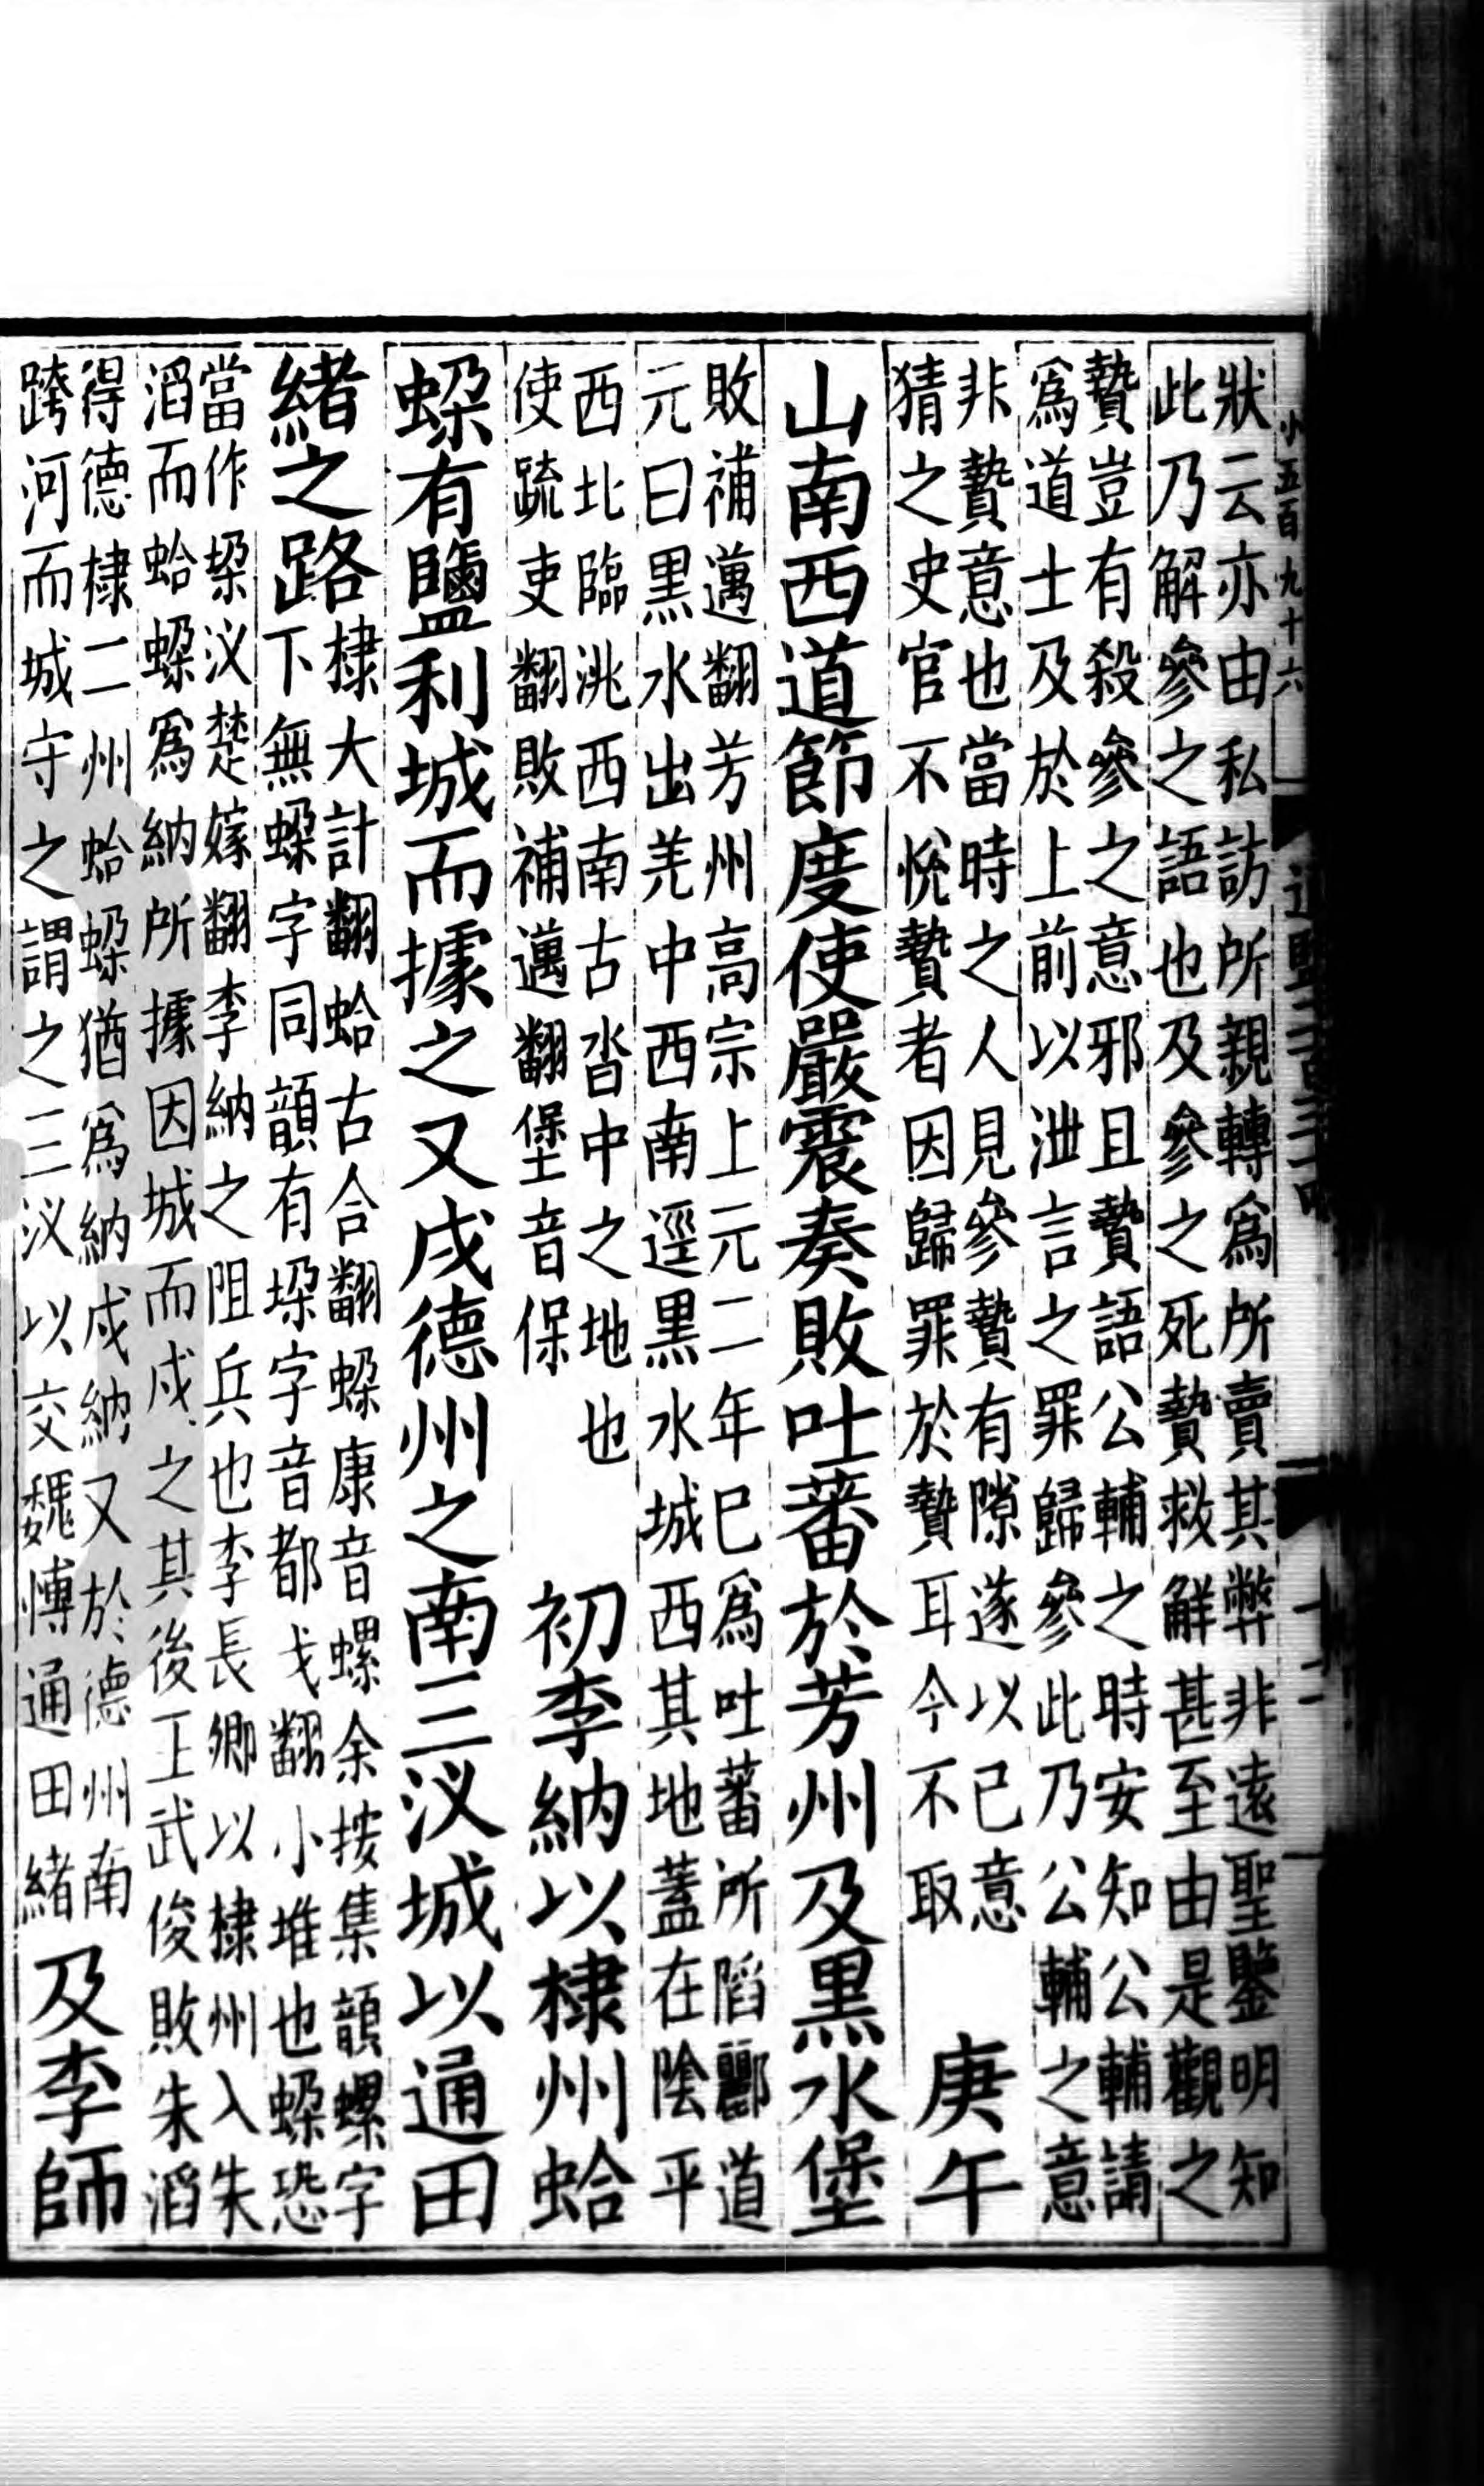 小五百九十六
狀云亦由私訪所親轉爲所賣其弊非遠聖鑒明知
此乃解參之語也及參之死贄救解甚至由是觀之
贄豈有殺參之意邪且贄語公輔之時安知公輔請
爲道士及於上前以泄言之罪歸參此乃公輔之意
非贄意也當時之人見參贄有隙遂以已意
猜之史官不悅贄者因歸罪於贄耳今不取
庚午
山南西道節度使嚴震奏敗吐蕃於芳州及黑水堡
敗補邁翻芳州高宗上元二年巳爲吐蕃所陷酈道
元曰黑水出羌中西南逕黑水城西其地蓋在陰平
西北臨洮西南古沓中之地也
使疏吏翻敗補邁翻堡音保
初李納以棣州蛤
𧎴有鹽利城而據之又戍德州之南三汊城以通田
緒之路
棣大計翻蛤古合翻𧎴康音螺余按集韻螺字
下無𧎴字同韻有垜字音都戈翻小堆也𧎴恐
當作垜汊楚嫁翻李納之阻兵也李長卿以棣州入朱
滔而蛤𧎴爲納所據因城而戍之其後王武俊敗朱滔
得德棣二州蛤𧎴猶爲納戍納又於德州南
跨河而城守之謂之三汊以交魏博通田緒
及李師